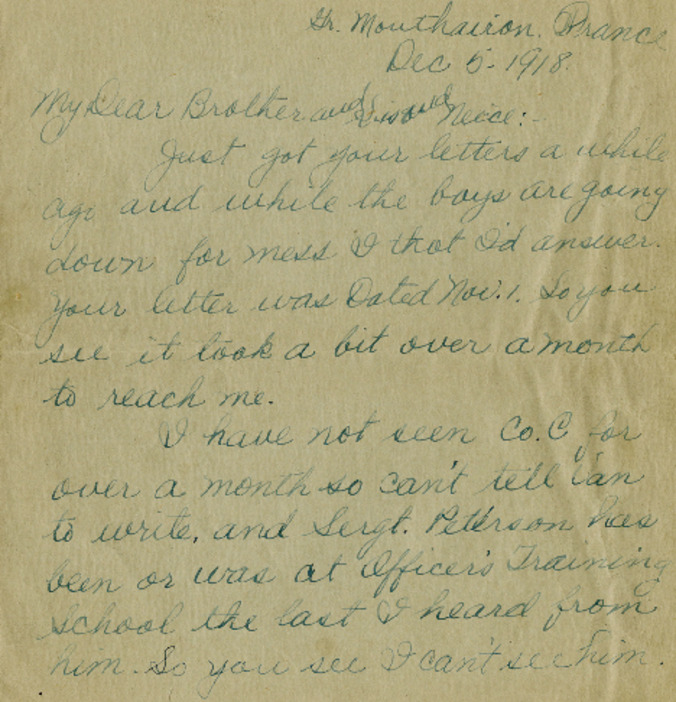 Gr. Mouthairon. France
Dec 5-1918.
My Dear Brother and Sis and Neice:-
Just got your letters a while
ago and while the boys are going
down for mess I that I'd answer.
Your letter was Dated Nov. 1. So you
see it took a bit over a month
to reach me.
I have not seen Co. C for
over a month so can't tell Ian
to write, and Sergt. Peterson has
been or was at Officer's Training
School the last I heard from
him. So you see I can't see him.